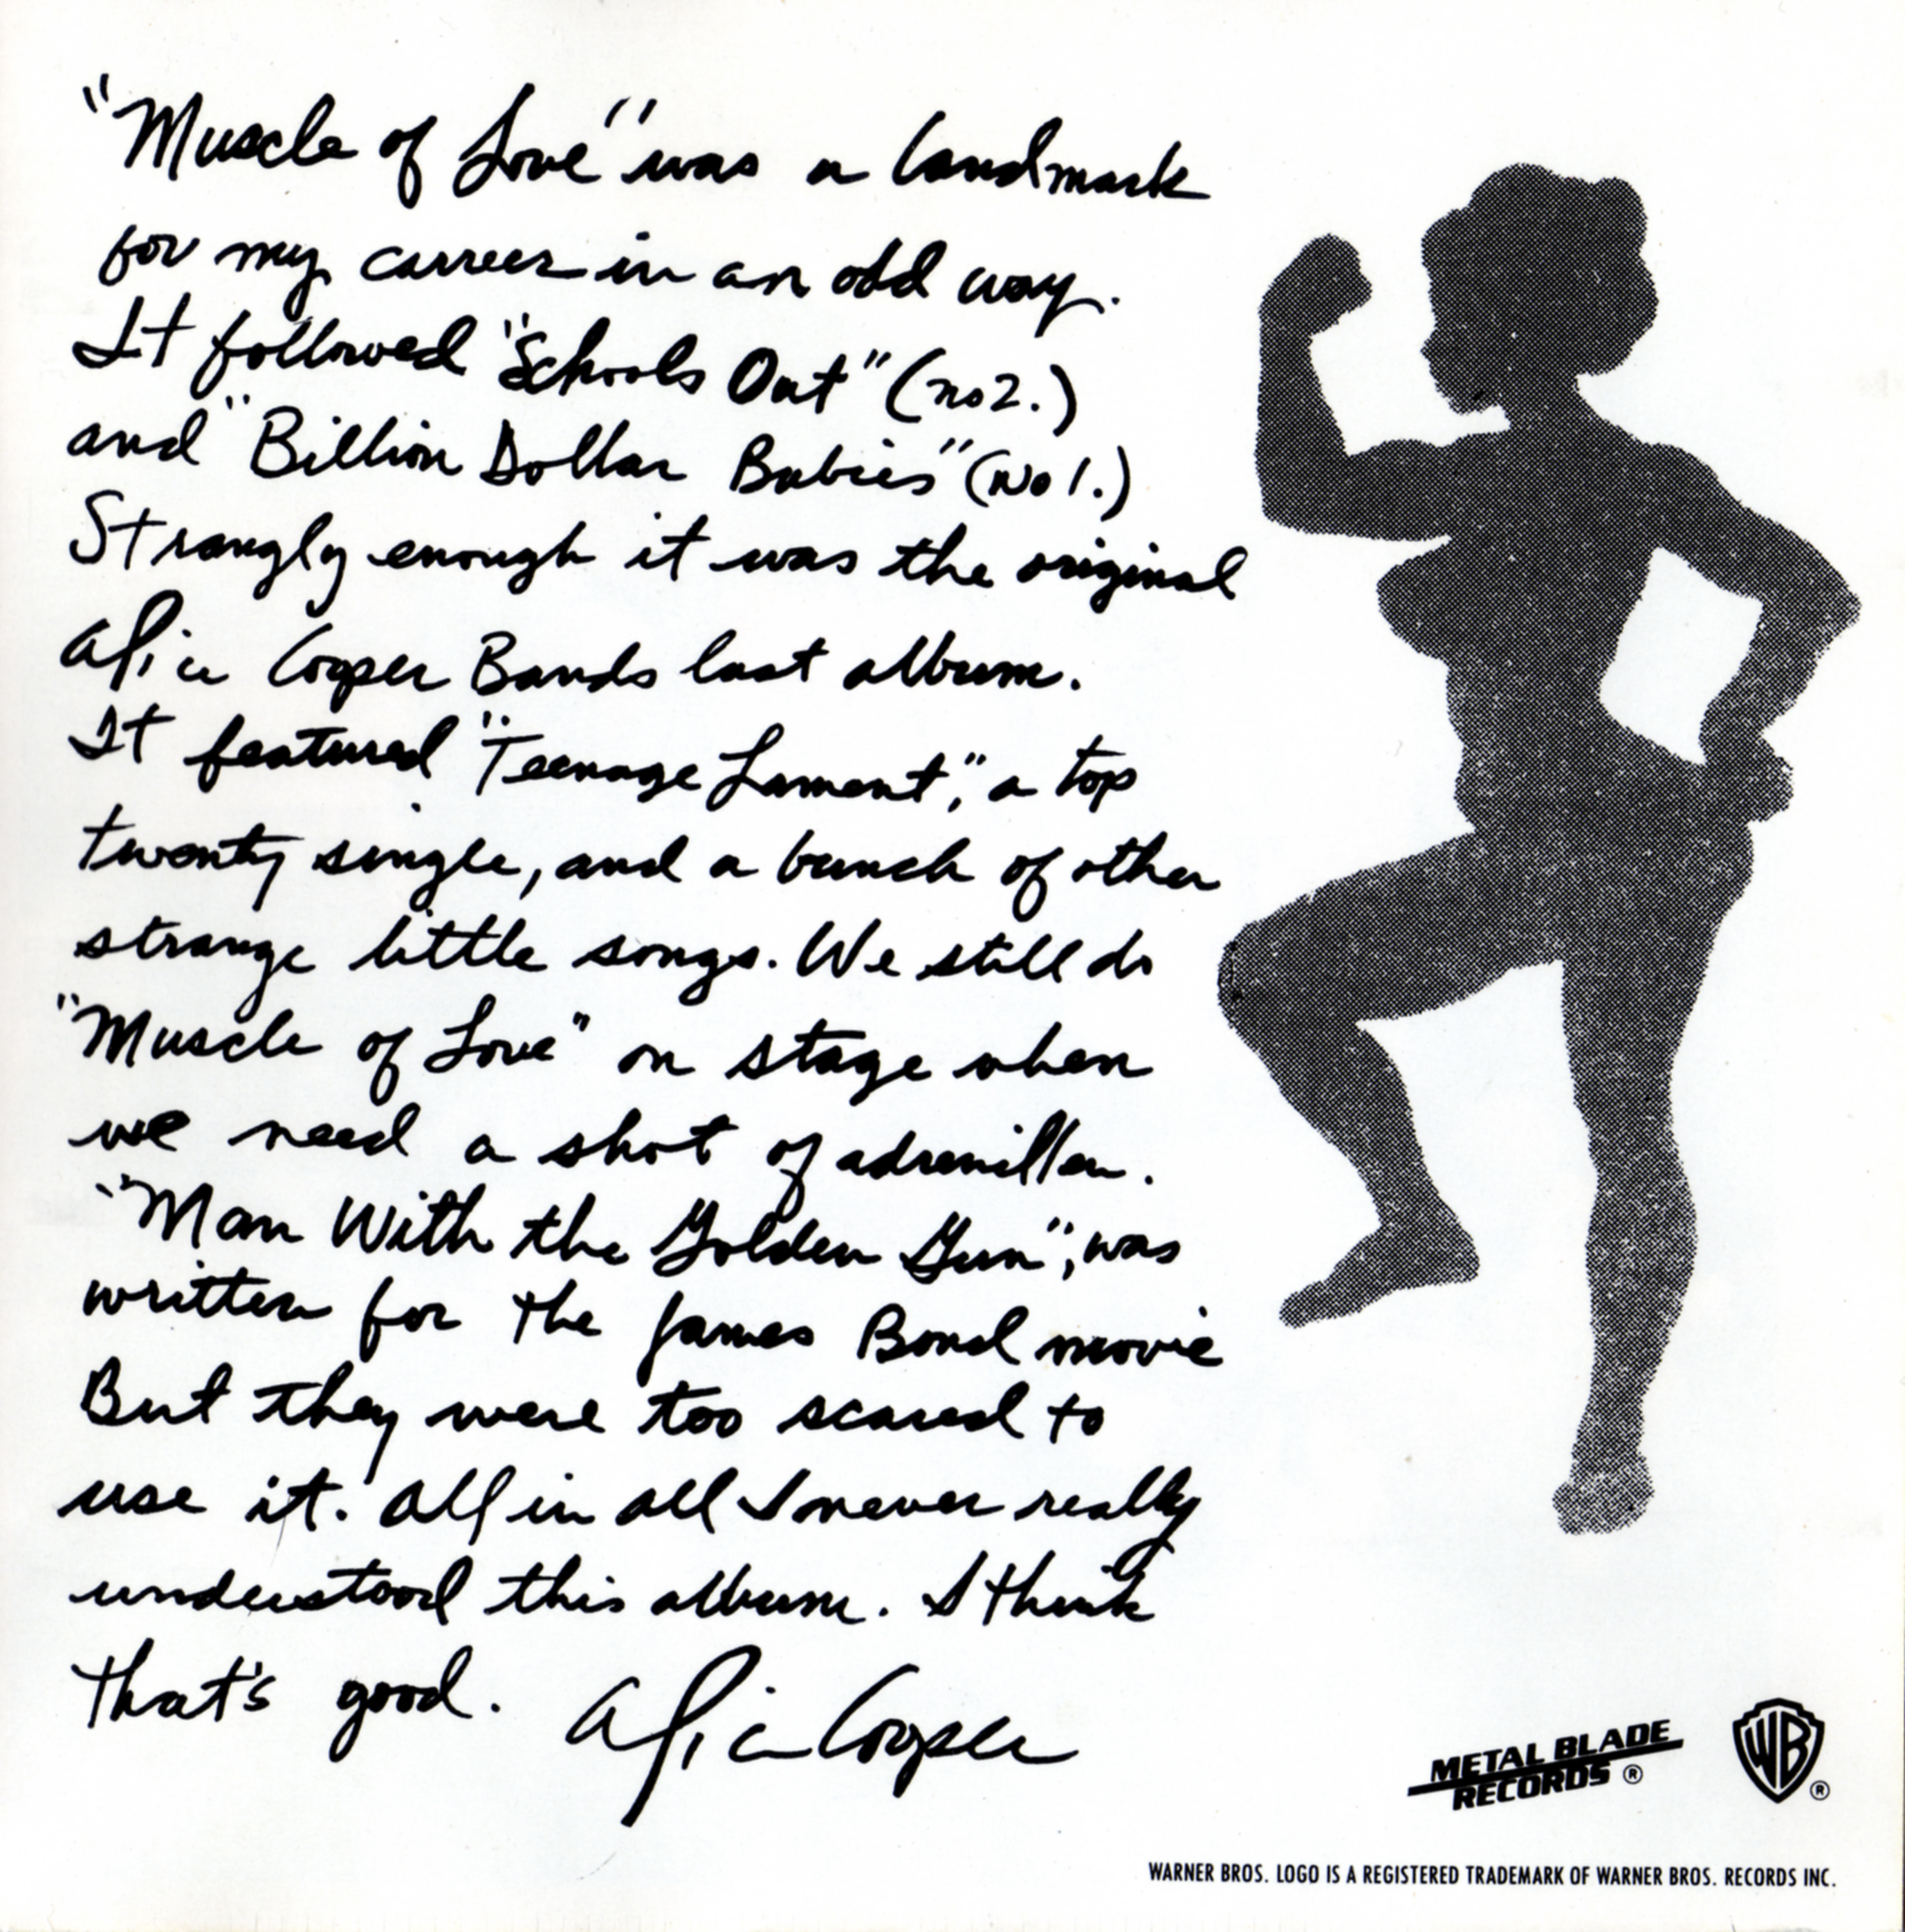 "Muscle of Love" was a landmark
for my carreer in an odd way.
It followed "Schools Out" (no2.)
and "Billion Dollar Babies" (No 1.)
Strangly enough it was the original
Alice Cooper Bands last album.
It featured "Teenage Lament", a top
twenty single, and a bunch of other
strange little songs. We still do
"Muscle of Love" on stage when
we need a shot of adrenillen.
"Man With the Golden Gun", was
written for the James Bond movie
But they were too scared to
use it. All in all I never really
understood this album. I think
that's good. Alice Cooper
METAL BLADE
RECORDS ®
WB ®
WARNER BROS. LOGO IS A REGISTERED TRADEMARK OF WARNER BROS. RECORDS INC.